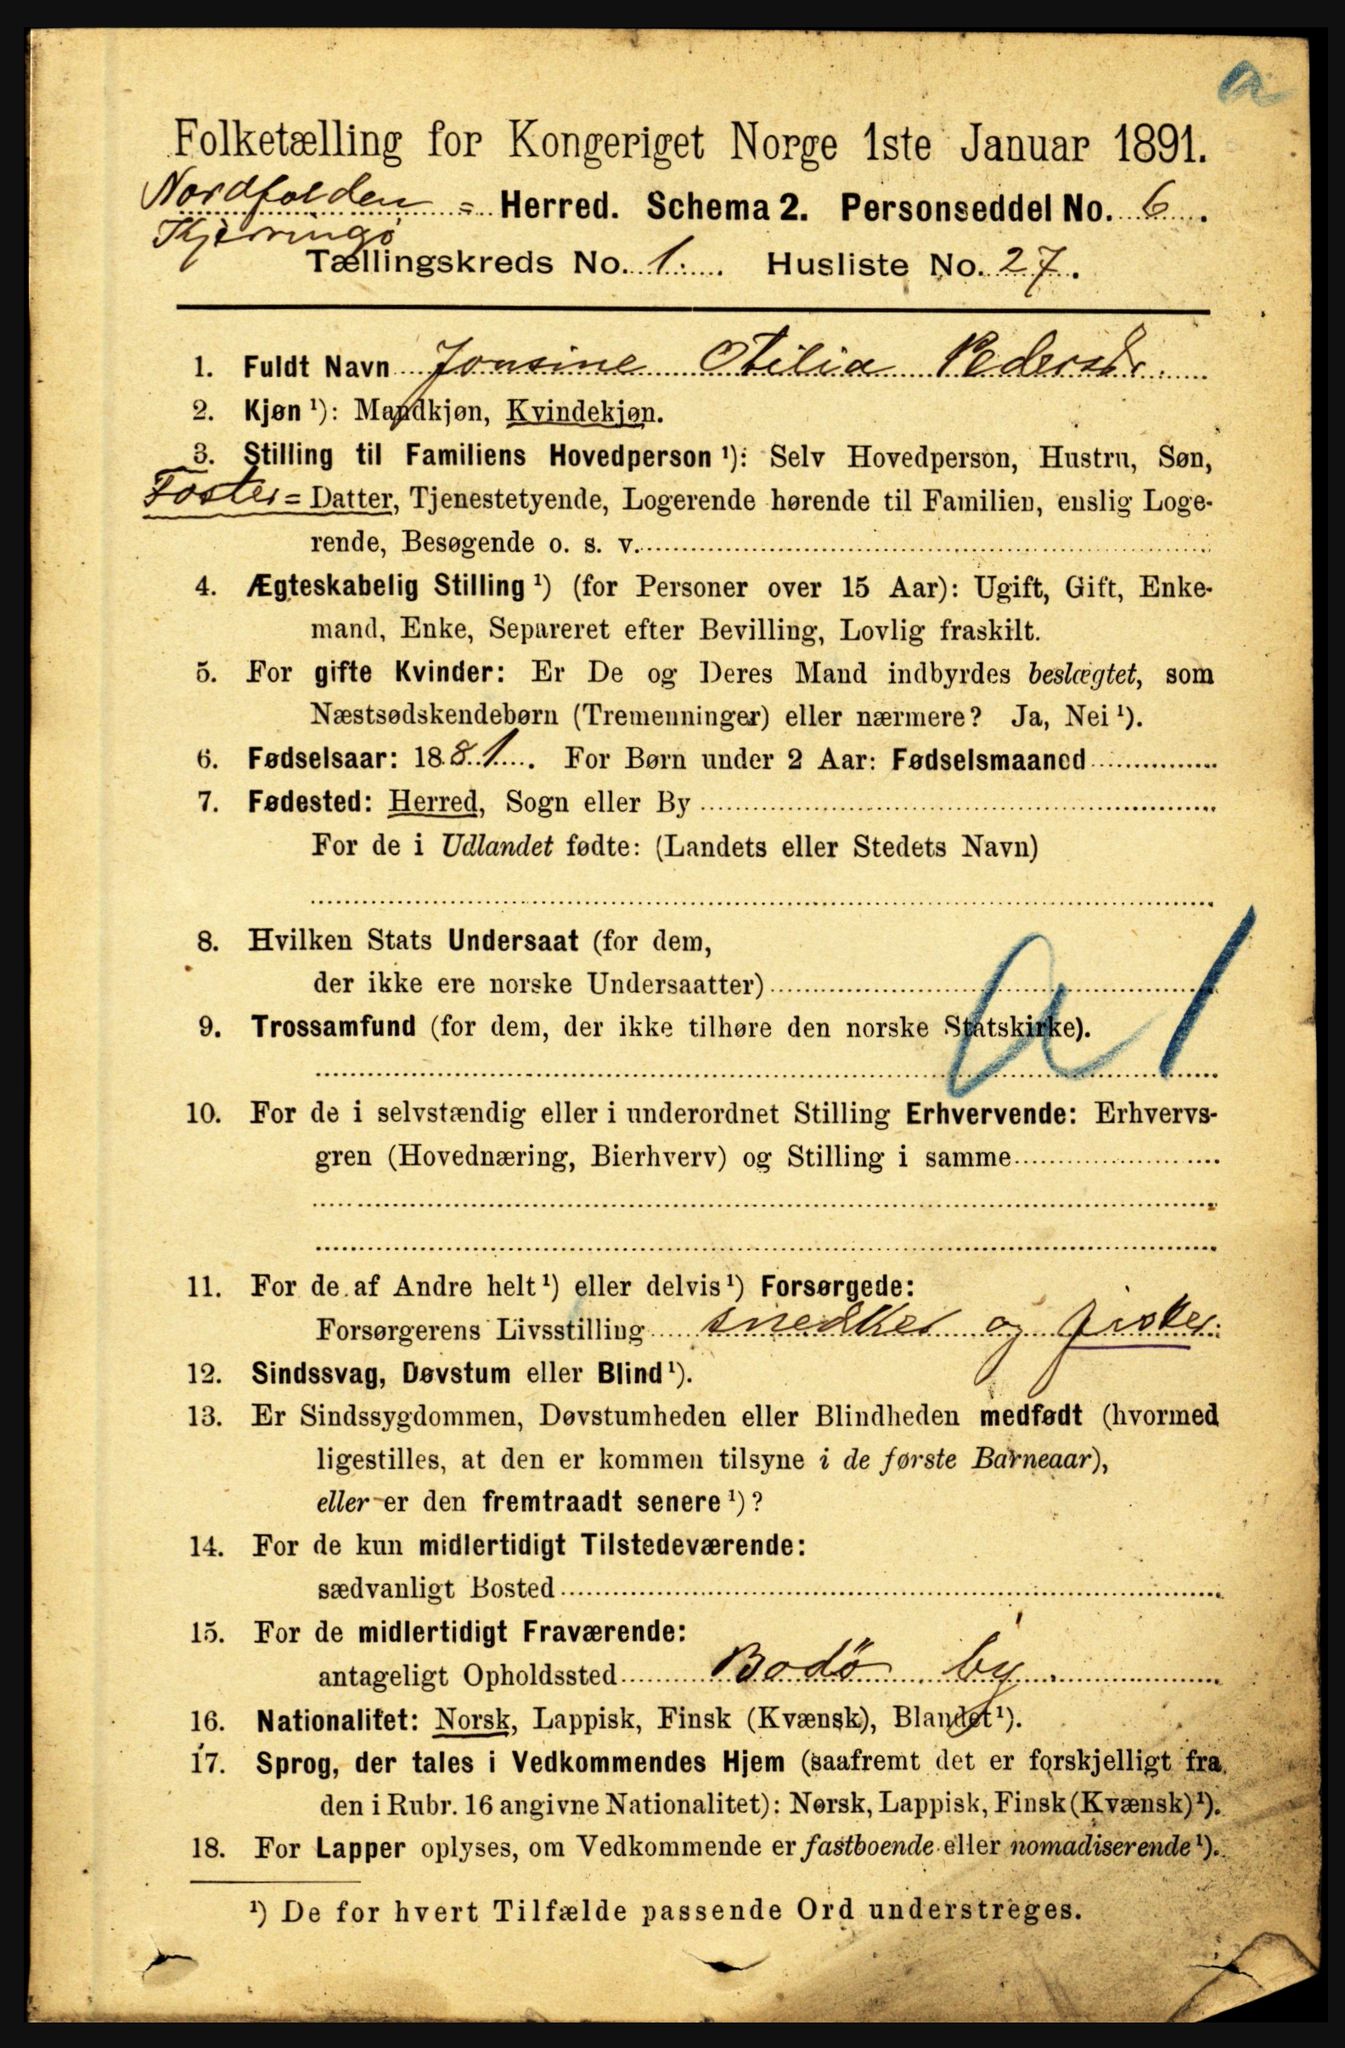 a
Folketælling for Kongeriget Norge 1ste Januar 1891.
Nordfolden = Herred. Schema 2. Personseddel No. 6.
Kjerringø
Tællingskreds No. 1. Husliste No. 27.
1. Fuldt Navn Jonsine Otilia Pedersdr.
2. Kjøn¹): Mandkjøn, Kvindekjøn.
3. Stilling til Familiens Hovedperson¹): Selv Hovedperson, Hustru, Søn,
Foster= Datter, Tjenestetyende, Logerende hørende til Familien, enslig Loge-
rende, Besøgende o. s. v.
4. Ægteskabelig Stilling¹) (for Personer over 15 Aar): Ugift, Gift, Enke-
mand, Enke, Separeret efter Bevilling, Lovlig fraskilt.
5. For gifte Kvinder: Er De og Deres Mand indbyrdes beslægtet, som
Næstsødskendebørn (Tremenninger) eller nærmere? Ja, Nei¹).
6. Fødselsaar: 1881. For Børn under 2 Aar: Fødselsmaaned
7. Fødested: Herred, Sogn eller By
For de i Udlandet fødte: (Landets eller Stedets Navn)
8. Hvilken Stats Undersaat (for dem,
der ikke ere norske Undersaatter)
a 1
9. Trossamfund (for dem, der ikke tilhøre den norske Statskirke).
10. For de i selvstændig eller i underordnet Stilling Erhvervende: Erhvervs-
gren (Hovednæring, Bierhverv) og Stilling i samme
11. For de af Andre helt¹) eller delvis¹) Forsørgede:
Forsørgerens Livsstilling snedker og fisker.
12. Sindssvag, Døvstum eller Blind¹).
13. Er Sindssygdommen, Døvstumheden eller Blindheden medfødt (hvormed
ligestilles, at den er kommen tilsyne i de første Barneaar),
eller er den fremtraadt senere¹)?
14. For de kun midlertidigt Tilstedeværende:
sædvanligt Bosted
15. For de midlertidigt Fraværende:
antageligt Opholdssted Bodø by.
16. Nationalitet: Norsk, Lappisk, Finsk (Kvænsk), Blandet¹).
17. Sprog, der tales i Vedkommendes Hjem (saafremt det er forskjelligt fra
den i Rubr. 16 angivne Nationalitet): Norsk, Lappisk, Finsk (Kvænsk)¹).
18. For Lapper oplyses, om Vedkommende er fastboende eller nomadiserende¹).
¹) De for hvert Tilfælde passende Ord understreges.